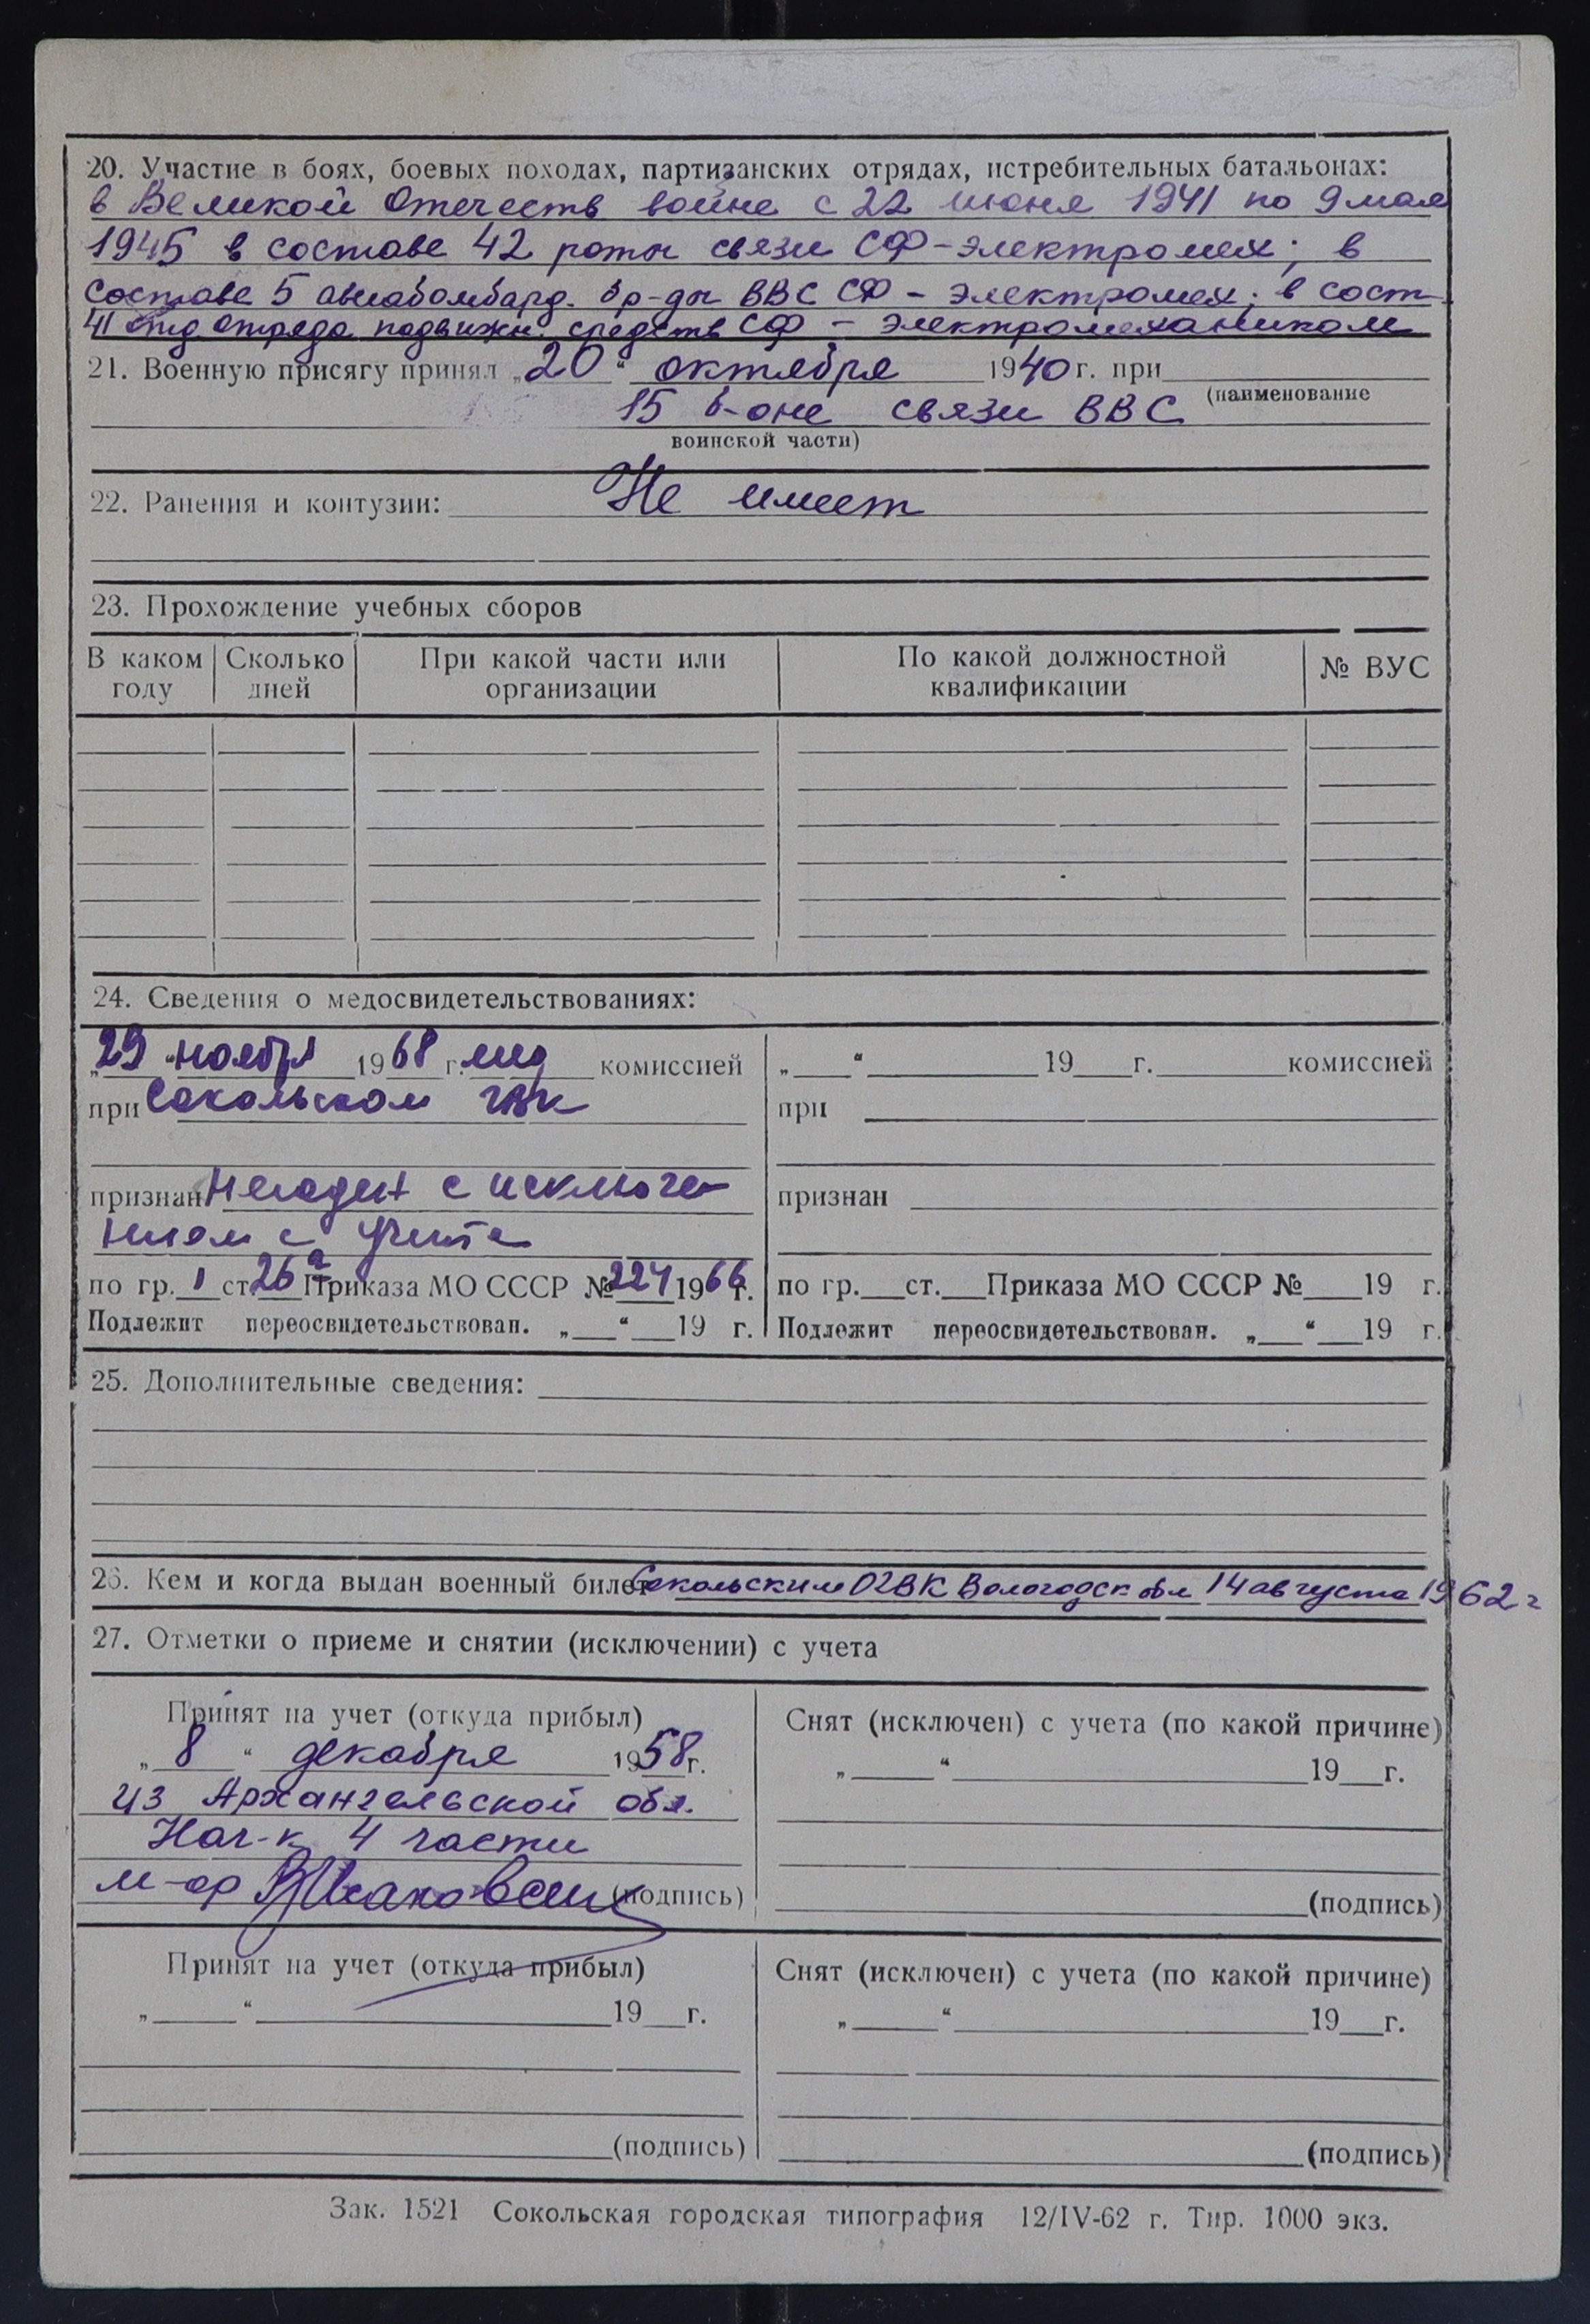 20. Участие в боях, боевых походах, партизанских отрядах, истребительных батальонах:
в Великой Отечеств войне с 22 июня 1941 по 9 мая
1945 в составе 42 роты связи СФ-электромех; в
составе 5 авиабомбард. бр-ды ВВС СФ - электромех; в сост
41 отд отряда подвижн. средств СФ - электромехаником
21. Военную присягу принял „20“ октября 1940 г. при
(наименование
15 б-оне связи ВВС
воинской части)
22. Ранения и контузии: Не имеет
23. Прохождение учебных сборов
В каком году Сколько дней При какой части или организации По какой должностной квалификации № ВУС
24. Сведения о медосвидетельствованиях:
„29“ ноября 1968 г. мед комиссией
при Сокольском ГВК
признан Негоден с исключе-
нием с учета
по гр. 1 ст. 26а Приказа МО СССР № 224 1966 г.
Подлежит переосвидетельствован. „ “ 19 г.
„ “ 19 г. комиссией
при
признан
по гр. ст. Приказа МО СССР № 19 г.
Подлежит переосвидетельствован. „ “ 19 г.
25. Дополнительные сведения:
26. Кем и когда выдан военный билет Сокольским ОГВК Вологодск обл 14 августа 1962 г
27. Отметки о приеме и снятии (исключении) с учета
Принят на учет (откуда прибыл)
„8“ декабря 1958 г.
из Архангельской обл.
Нач-к 4 части
м-ор (подпись)
Снят (исключен) с учета (по какой причине)
„ “ 19 г.
(подпись)
Принят на учет (откуда прибыл)
„ “ 19 г.
(подпись)
Снят (исключен) с учета (по какой причине)
„ “ 19 г.
(подпись)
Зак. 1521 Сокольская городская типография 12/IV-62 г. Тир. 1000 экз.